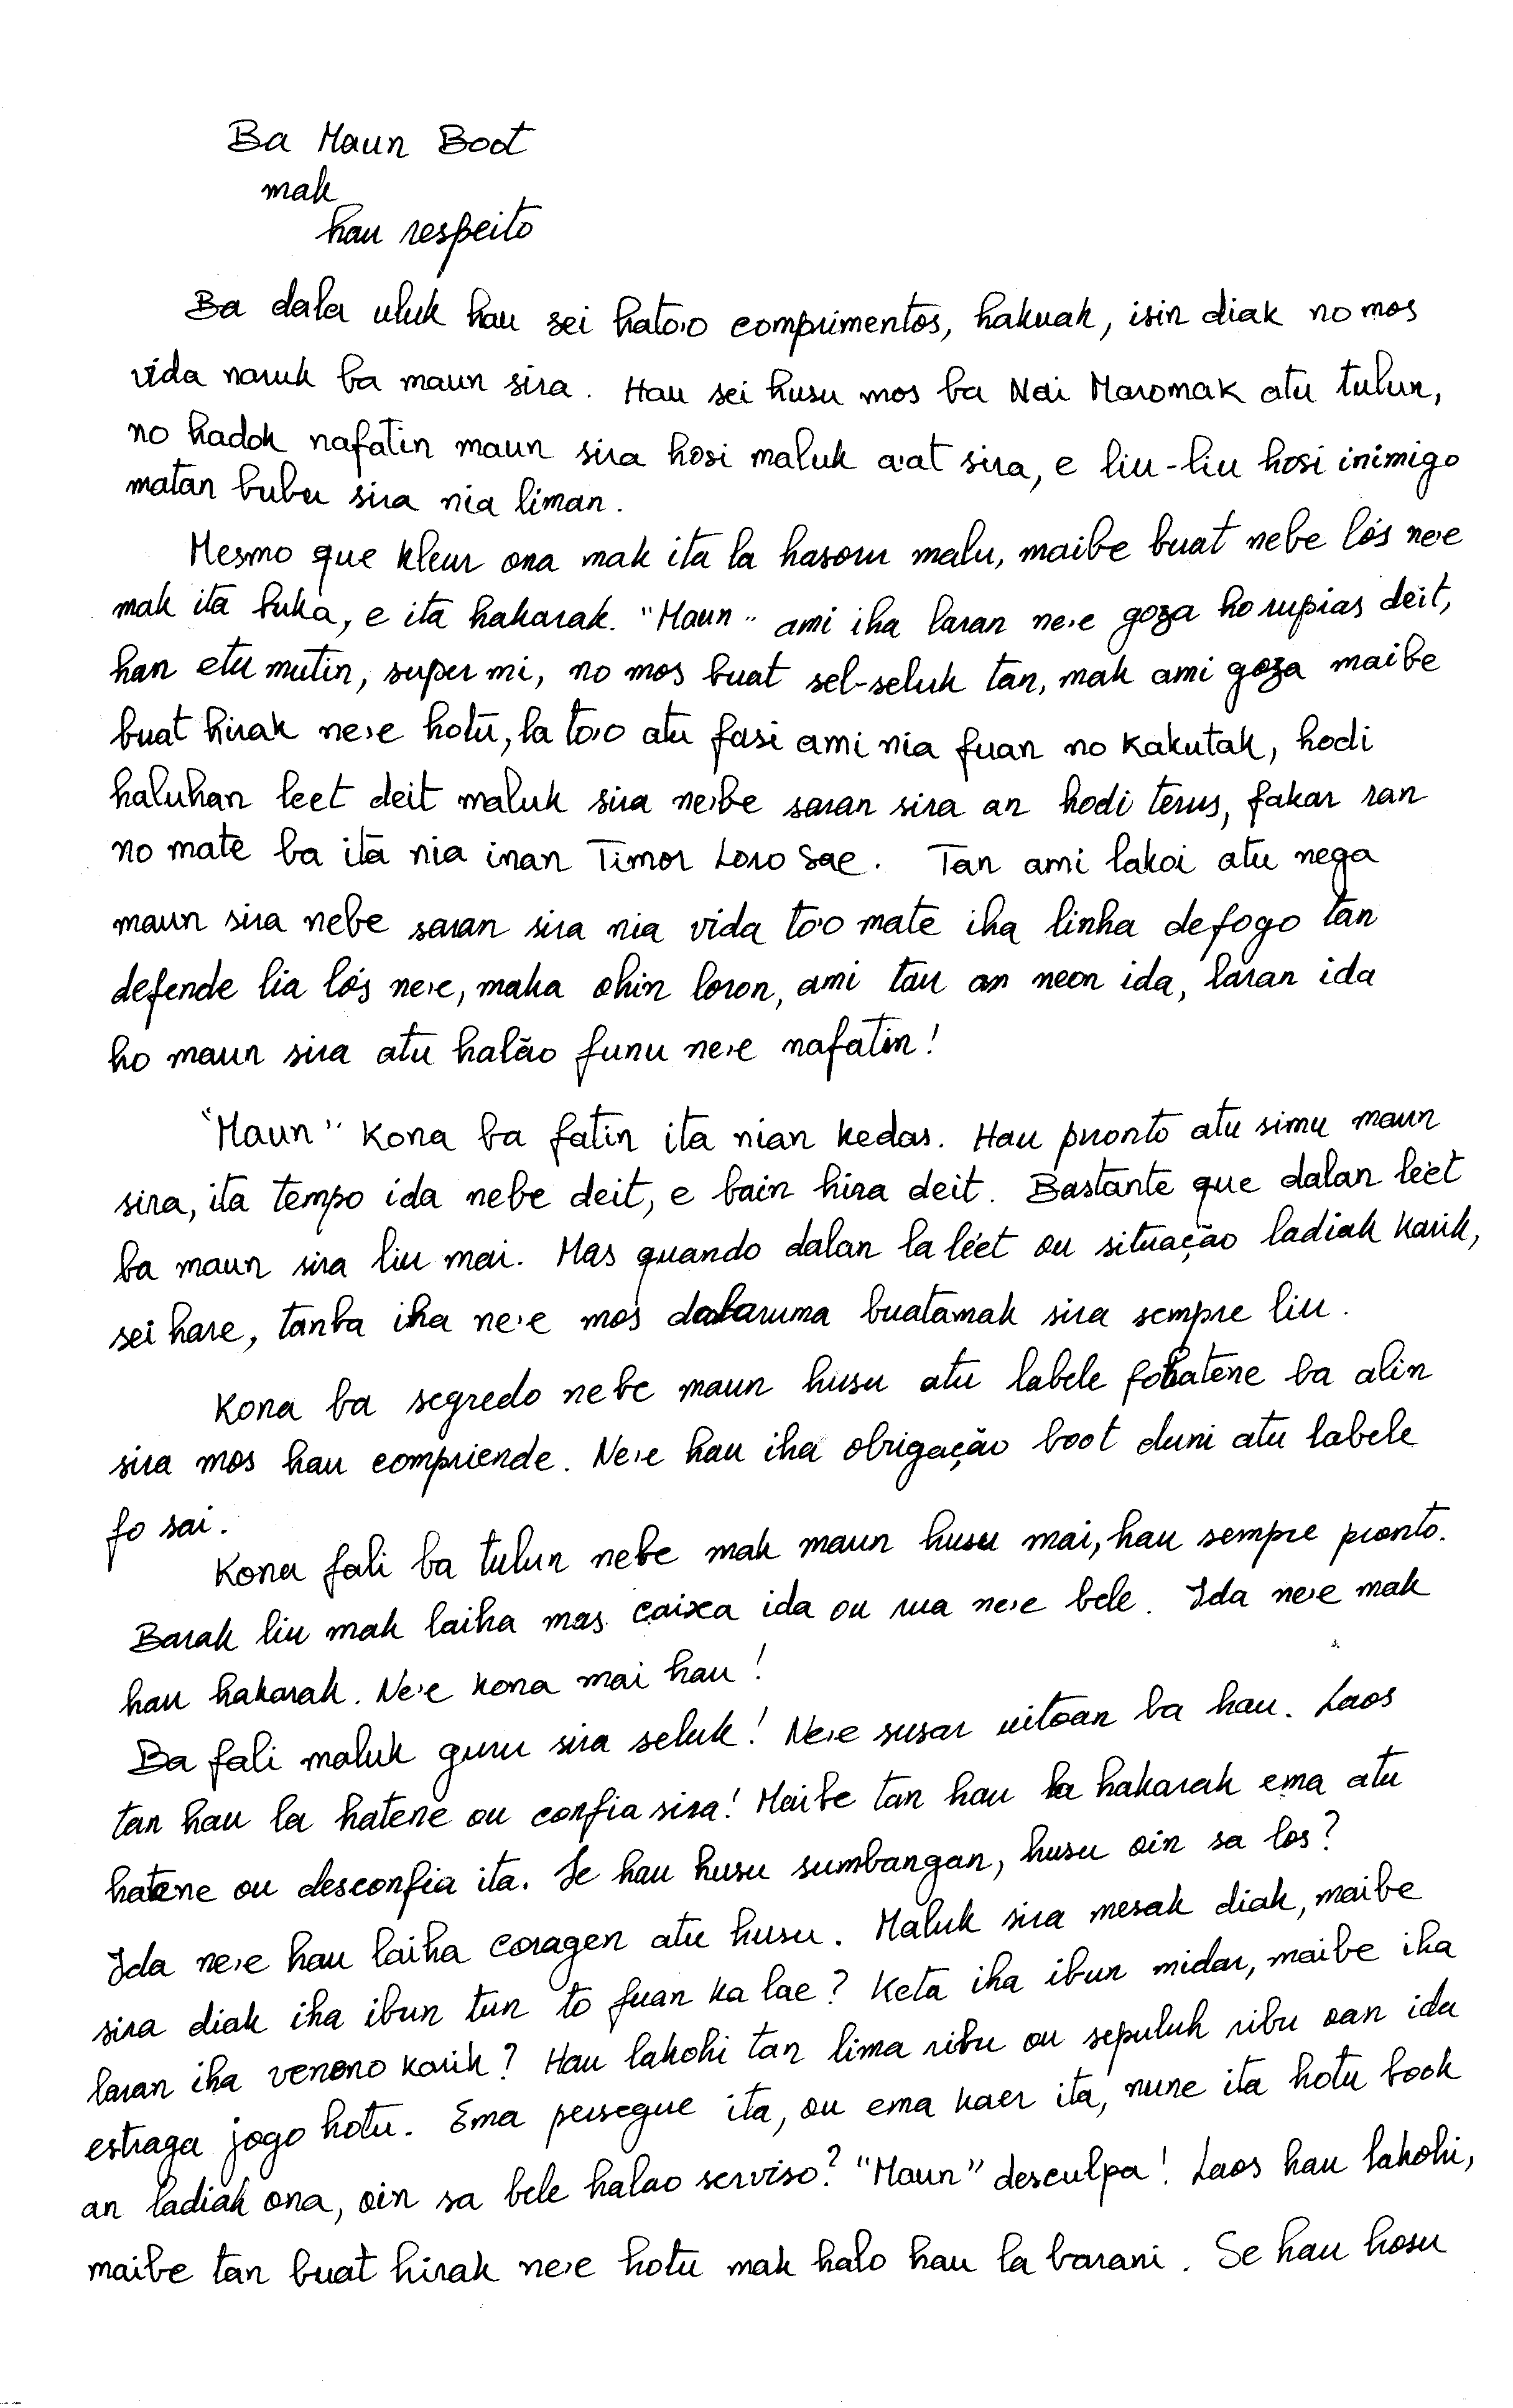 Ba Maun Boot
mak
hau respeito
Ba dala uluk hau sei hato'o comprimentos, hakuak, isin diak no mos
vida naruk ba maun sira. Hau sei husu mos ba Nai Maromak atu tulun,
no hadok nafatin maun sira hosi maluk a'at sira, e liu-liu hosi inimigo
matan bubu sira nia liman.
Mesmo que kleur ona mak ita la hasoru malu, maibe buat nebe lós ne'e
mak ita buka, e ita hakarak. "Maun" ami iha laran ne'e goza ho rupias deit,
han etu mutin, super mi, no mos buat sel-seluk tan, mak ami goza maibe
buat hirak ne'e hotu, la to'o atu fasi ami nia fuan no kakutak, hodi
haluhan leet deit maluk sira ne'ebe saran sira an hodi terus, fakar ran
no mate ba ita nia inan Timor Loro Sae. Tan ami lakoi atu nega
maun sira nebe saran sira nia vida to'o mate iha linha de fogo tan
defende lia lós ne'e, maka ohin loron, ami tau an neon ida, laran ida
ho maun sira atu halão funu ne'e nafatin!
"Maun" kona ba fatin ita nian kedas. Hau pronto atu simu maun
sira, ita tempo ida nebe deit, e bain hira deit. Bastante que dalan léet
ba maun sira liu mai. Mas quando dalan la léet ou situação ladiak karik,
sei hare, tanba iha ne'e mos dalaruma buatamak sira sempre liu.
Kona ba segredo nebe maun husu atu labele fohatene ba alin
sira mos hau compriende. Ne'e hau iha obrigação boot duni atu labele
fo sai.
Kona fali ba tulun nebe mak maun husu mai, hau sempre pronto.
Barak liu mak laiha mas caixa ida ou rua ne'e bele. Ida ne'e mak
hau hakarak. Ne'e kona mai hau!
Ba fali maluk guru sira seluk! Ne'e susar uitoan ba hau. Laos
tan hau la hatene ou confia sira! Maibe tan hau la hakarak ema atu
hatene ou desconfia ita. Se hau husu sumbangan, husu oin sa los?
Ida ne'e hau laiha coragen atu husu. Maluk sira mesak diak, maibe
sira diak iha ibun tun to fuan ka lae? Keta iha ibun midar, maibe iha
laran iha veneno karik? Hau lakohi tan lima ribu ou sepuluh ribu oan ida
estraga jogo hotu. Ema persegue ita, ou ema kaer ita, nune ita hotu book
an ladiak ona, oin sa bele halao serviso? "Maun" desculpa! Laos hau lakohi,
maibe tan buat hirak ne'e hotu mak halo hau la barani. Se hau hosu